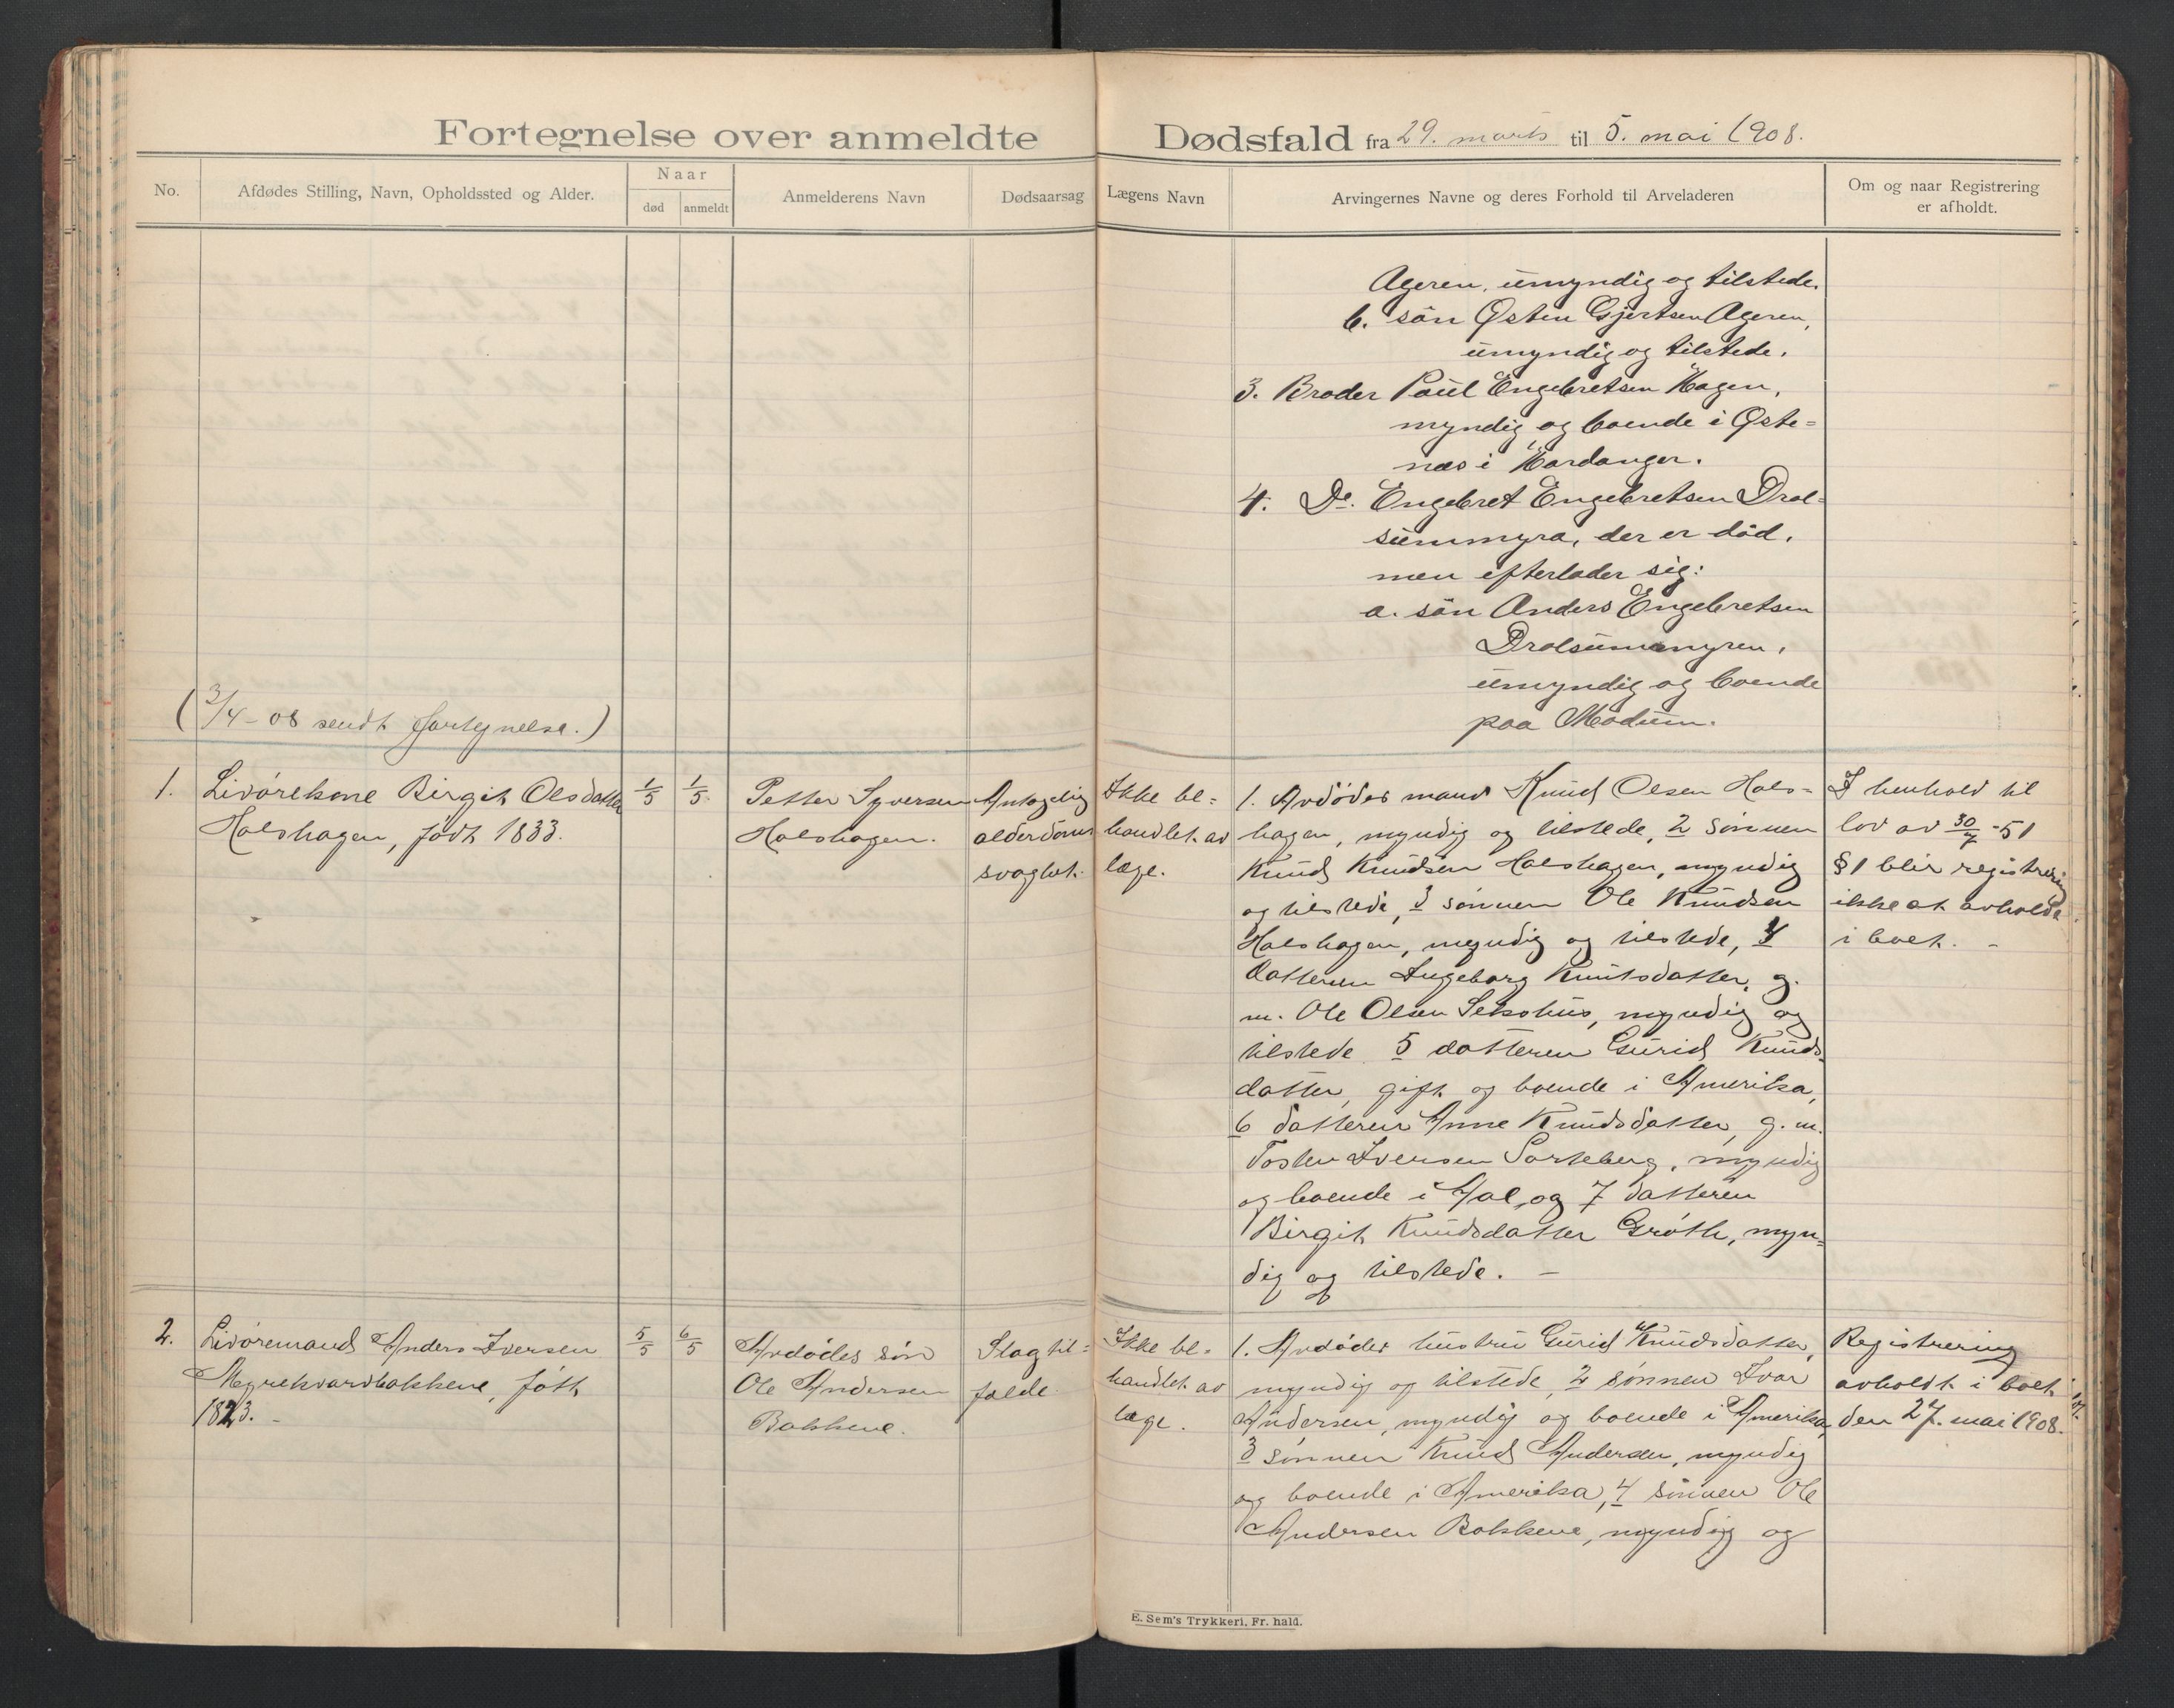 Fortegnelse over anmeldte Dødsfald fra 29. marts til 5. mai 1908.
No.
Afdødes Stilling, Navn, Opholdssted og Alder.
Naar
død
anmeldt
Anmelderens Navn
Dødsaarsag
Lægens Navn
Arvingernes Navne og deres Forhold til Arveladeren
Om og naar Registrering
er afholdt.
Ageren, umyndig og tilstede.
b. søn Østen Gjertsen Ageren,
umyndig og tilstede.
3. Broder Paul Engebretsen Hagen,
myndig og boende i Øste=
næs i Hardanger.
4. Do. Engebret Engebretsen Drol=
summyra, der er død,
men efterlader sig:
a. søn Anders Engebretsen
Drolsummyren,
umyndig og boende
paa Modum.
(3/4-08 sendt fortegnelse.)
1.
Livørekone Birgit Olsdatter
Halshagen, født 1833.
1/5
1/5
Petter Syversen
Halshagen.
Antagelig
alderdoms
svaghet.
Ikke be=
handlet av
læge.
1. Avdødes mand Knud Olsen Hals=
hagen, myndig og tilstede, 2 sønnen
Knud Knudsen Halshagen, myndig
og tilstede, 3 sønnen Ole Knudsen
Halshagen, myndig og tilstede, 4
datteren Ingeborg Knutsdatter, g.
m. Ole Olsen myndig og
tilstede 5 datteren Gurid Knuds=
datter, gift og boende i Amerika,
6 datteren Anne Knudsdatter, g. m.
Tosten Iversen myndig
og boende i Aal, og 7 datteren
Birgit Knudsdatter Grøth, myn=
dig og tilstede. –
I henhold til
lov av 30/7-51
§1 blir registrering
ikke at avholde
i boet. –
2.
Livøremand Anders Iversen
født
1823. –
5/5
6/5
Avdødes søn
Ole Andersen
Bakkene.
Slagtil=
fælde.
Ikke be=
handlet av
læge.
1. Avdødes hustru Gurid Knudsdatter,
myndig og tilstede, 2 sønnen Ivar
Andersen, myndig og boende i Amerika,
3 sønnen Knud Andersen, myndig
og boende i Amerika, 4 sønnen Ole
Andersen Bakkene, myndig og
Registrering
avholdt i boet
den 27. mai 1908.
E. Sem's Trykkeri, Fr. hald.